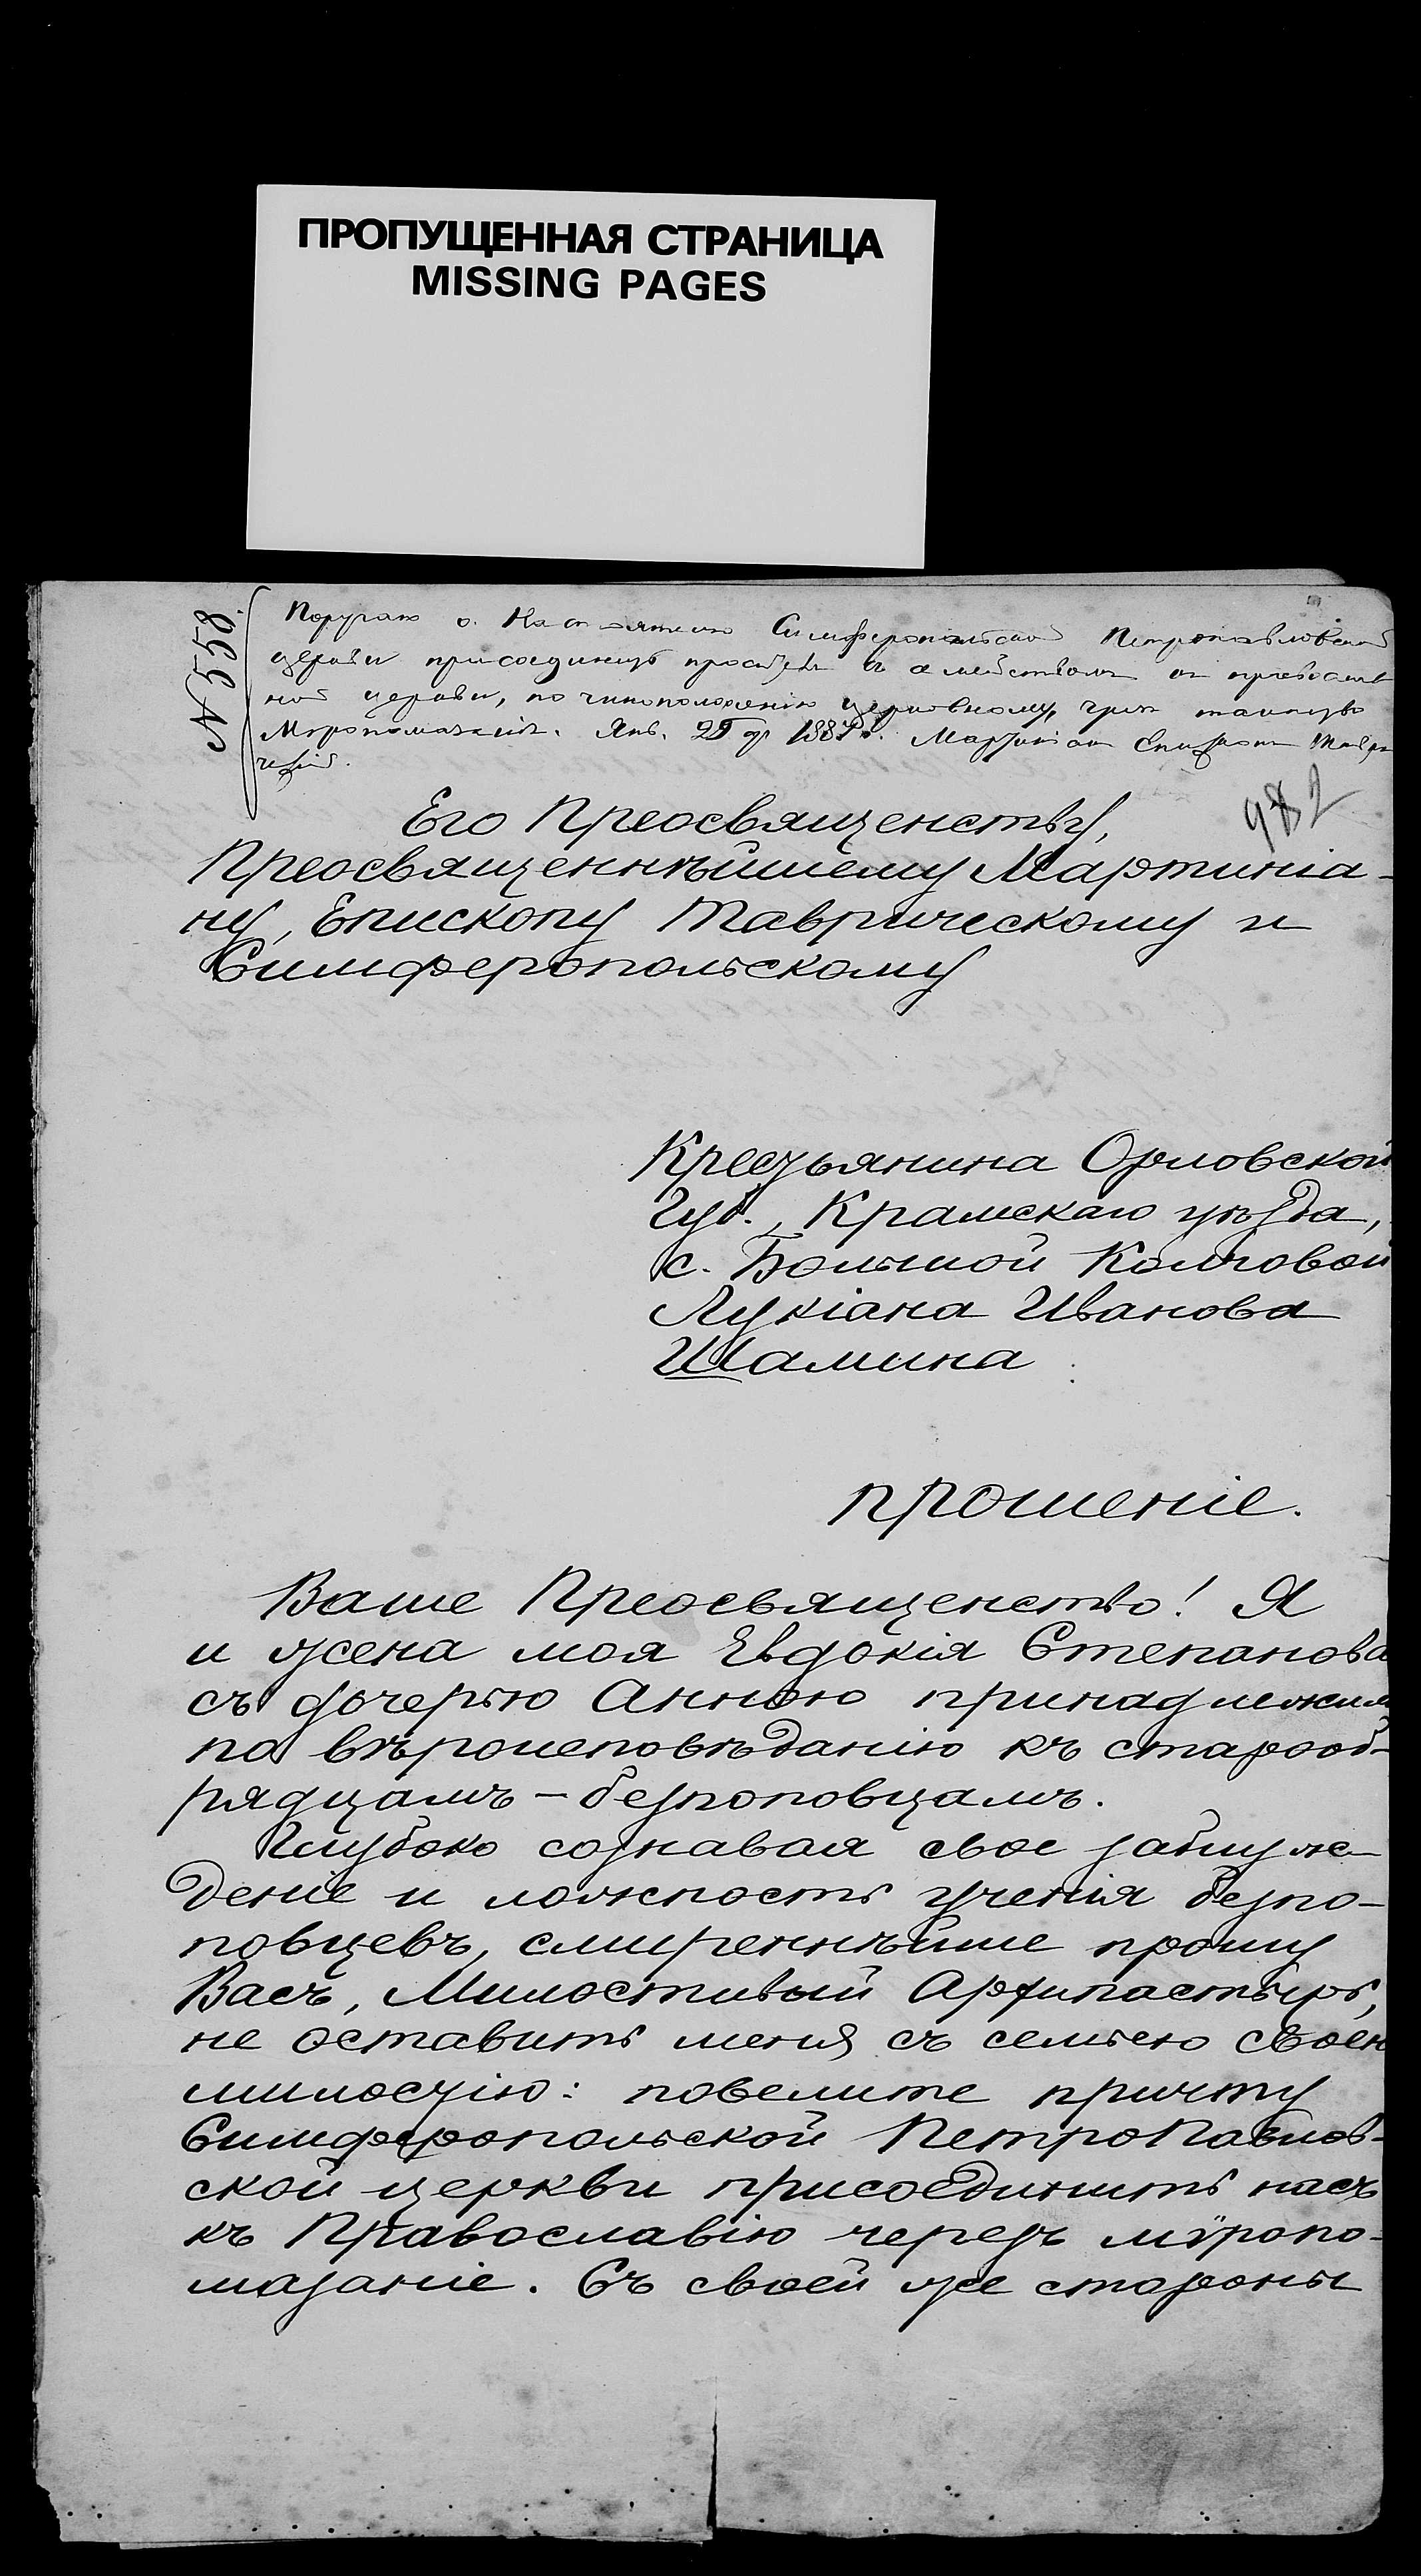 ПРОПУЩЕННАЯ СТРАНИЦА
MISSING PAGES
N 558.
Поручаю о. Настоятелю Симферопольской Петропавловской
церкви присоединить просителя съ семействомъ къ православ
ной церкви, по чиноположенію церковному, чрезъ таинство
Мѵропомазанія. Янв. 25 д. 188 Мартиніан Епископъ Таври
ческій.
Его Преосвященству,
Преосвященнѣйшему Мартиніа-
ну, Епископу Таврическому и
Симферопольскому
Крестьянина Орловской
Губ., Крамскаго уѣзда,
с. Большой Колчовой
Лукіана Иванова
Шамина
прошеніе.
Ваше Преосвященство! Я
и жена моя Евдокія Степанова
съ дочерью Анною принадлежим
по вѣроисповѣданію къ старооб-
рядцамъ – безпоповцамъ.
Глубоко сознавая свое заблуж-
деніе и ложность ученія безпо-
повцевъ, смиреннѣйше прошу
Васъ, Милостивый Архипастырь,
не оставить меня съ семьею своею
милостію: повелите причту
Симферопольской ПетроПавлов-
ской церкви присоединить насъ
къ Православію черезъ мѵропо-
мазаніе. Съ своей же стороны